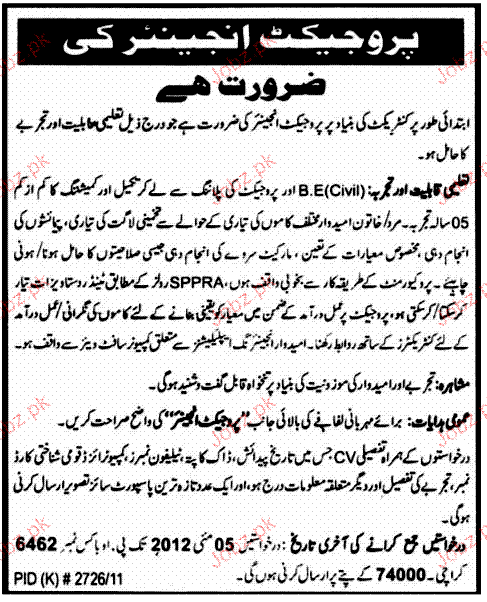 پروجیکٹ انجینئر کی
ضرورت ہے
ابتدائی طور پر کنٹریکٹ کی بنیاد پر پروجیکٹ انجینئر کی ضرورت ہے جو درج ذیل تعلیمی قابلیت اور تجربے
کا حامل ہو۔
تعلیمی قابلیت اور تجربہ: B.E(Civil) اور پروجیکٹ کی پلاننگ سے لے کر تکمیل اور کمیشننگ کا کم از کم
05 سالہ تجربہ۔ مرد/خاتون امیدوار مختلف کاموں کی تیاری کے حوالے سے تخمینی لاگت کی تیاری، پیمائشوں کی
انجام دہی، مخصوص معیارات کے تعین، مارکیٹ سروے کی انجام دہی جیسی صلاحیتوں کا حامل ہونا/ہونی
چاہیئے۔ پروکیورمنٹ کے طریقہ کار سے بخوبی واقف ہوں، SPPRA رولز کے مطابق ٹینڈر دستاویزات تیار
کرسکتا/کرسکتی ہو، پروجیکٹ پر عمل درآمد کے ضمن میں معیار کو یقینی بنانے کے لئے کاموں کی نگرانی/عمل درآمد
کے لئے کنٹریکٹرز کے ساتھ روابط رکھنا۔ امیدوار انجینئرنگ ایپلیکیشنز سے متعلق کمپیوٹر سافٹ ویئر سے واقف ہو۔
مشاہرہ: تجربے اور امیدوار کی موزونیت کی بنیاد پر تنخواہ قابل گفت و شنید ہوگی۔
عمومی ہدایات: برائے مہربانی لفافے کی بالائی جانب "پروجیکٹ انجینئر" کی واضح صراحت کریں۔
درخواستوں کے ہمراہ تفصیلی CV جس میں تاریخ پیدائش، ڈاک کا پتہ، ٹیلیفون نمبرز، کمپیوٹرائزڈ قومی شناختی کارڈ
نمبر، تجربے کی تفصیل اور دیگر متعلقہ معلومات درج ہو، اور ایک عدد تازہ ترین پاسپورٹ سائز تصویر ارسال کرنی
ہوگی۔
درخواستیں جمع کرانے کی آخری تاریخ: درخواستیں 05 مئی 2012ء تک پی۔ او باکس نمبر 6462
کراچی۔ 74000 کے پتے پر ارسال کرنی ہوں گی۔
PID (K) # 2726/11
Jobz.pk